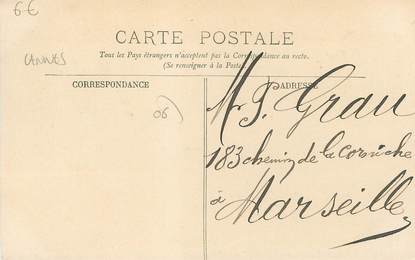 6€
CANNES
CARTE POSTALE
Tous les Pays étrangers n'acceptent pas la Correspondance au recto.
(Se renseigner à la Poste)
CORRESPONDANCE
ADRESSE
06
Mr J. Grau
183 chemin de la Corniche
à
Marseille